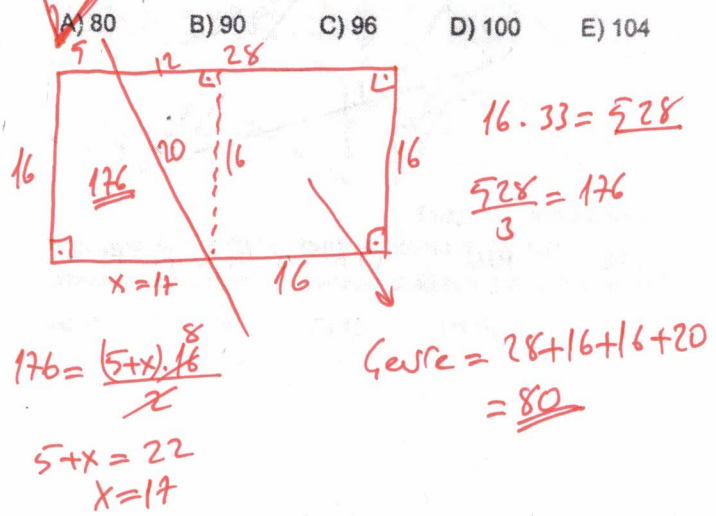 A) 80 B) 90 C) 96 D) 100 E) 104
5 12 28
16 176 20 16 16
x = 17 16
16 . 33 = 528
528/3 = 176
176 = (5+x).16/2 8
5+x = 22
x = 17
Çevre = 28+16+16+20
= 80